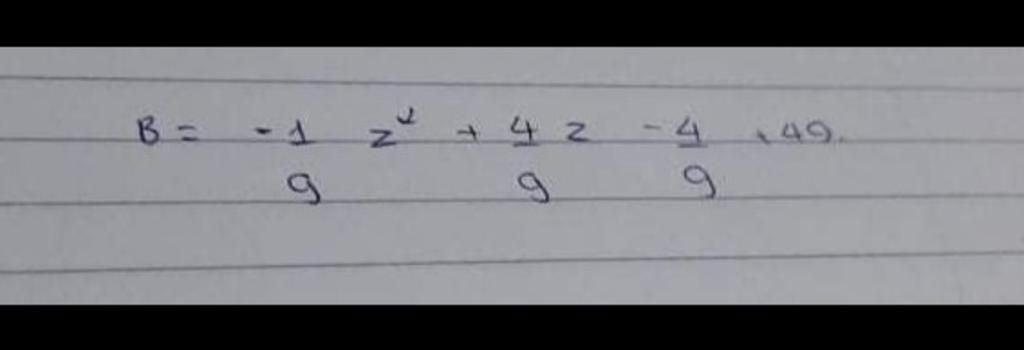 B = -1/9 z² + 4/9 z - 4/9 + 49.